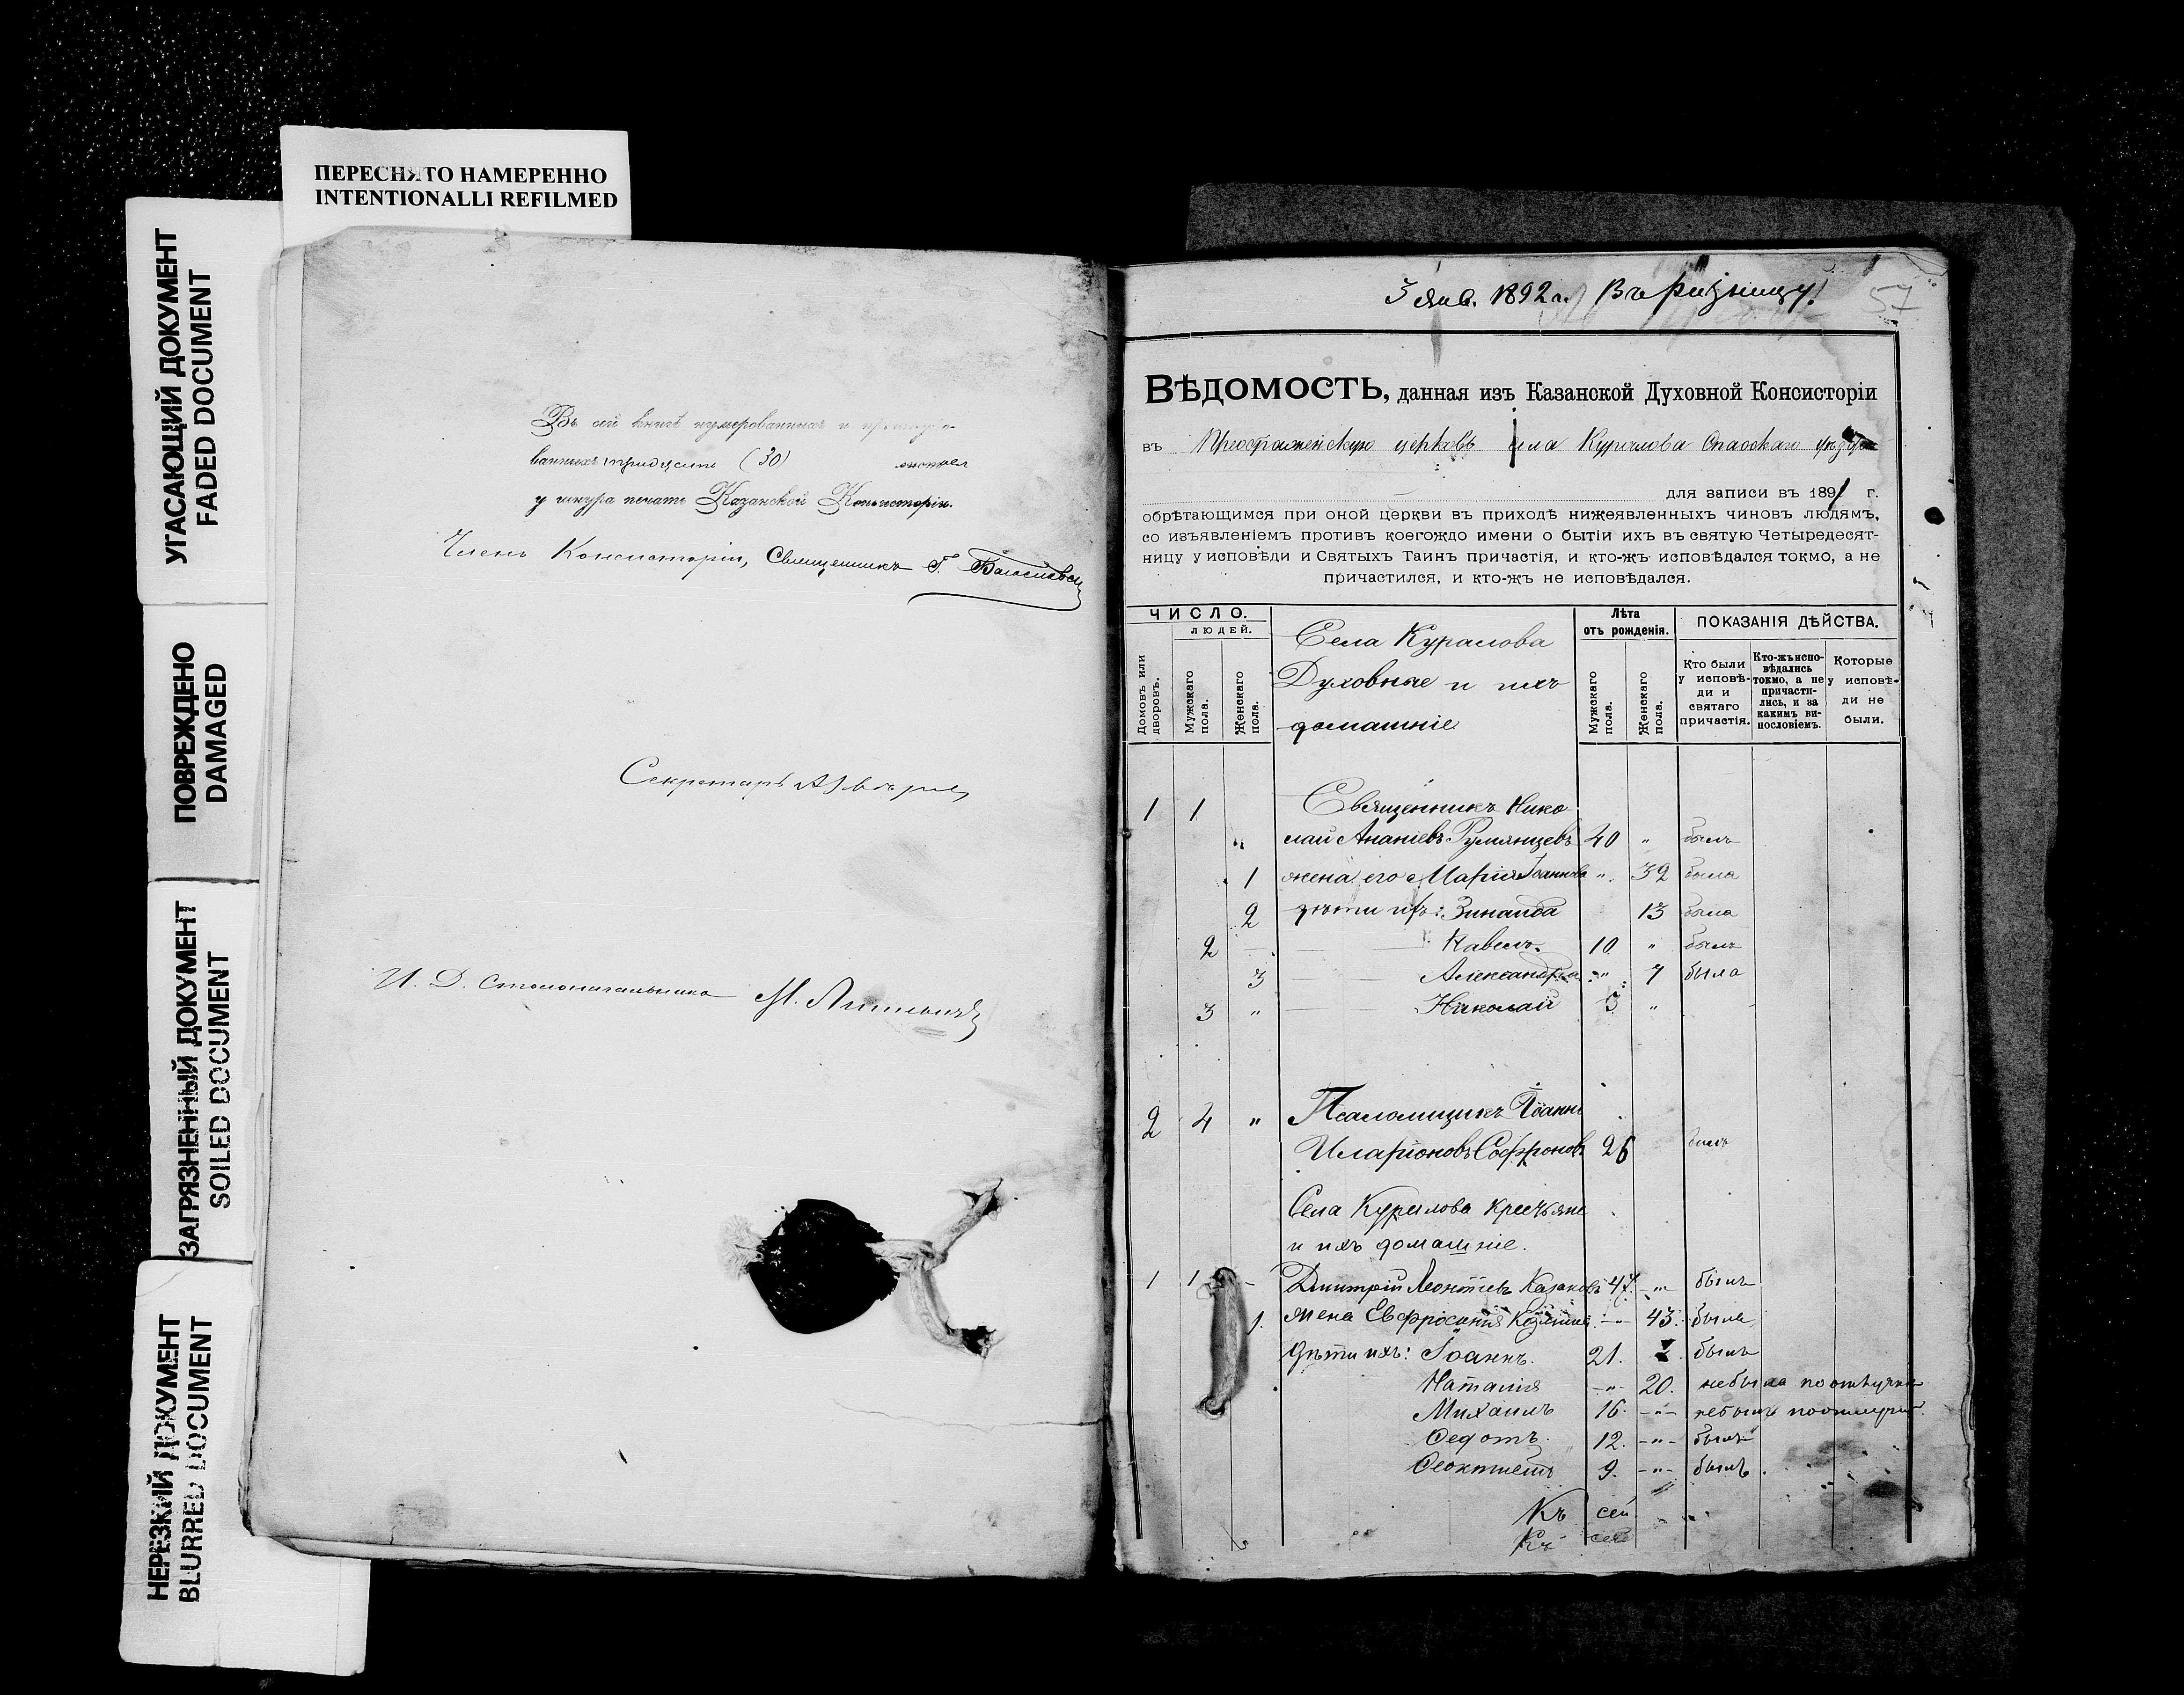 ПЕРЕСНЯТО НАМЕРЕННО
INTENTIONALLI REFILMED
УГАСАЮЩИЙ ДОКУМЕНТ
FADED DOCUMENT
ПОВРЕЖДЕНО
DAMAGED
ЗАГРЯЗНЕННЫЙ ДОКУМЕНТ
SOILED DOCUMENT
НЕРЕЗКИЙ ДОКУМЕНТ
BLURRED DOCUMENT
Въ сей книгѣ нумерованныхъ и
ванныхъ тридцать (30) листовъ
у шнура печать Казанской Консисторіи.
Членъ Консисторіи, Священникъ
Секретарь
И. Д. Столоначальника М.
3 янв. 1892 г. Въ ризницу.
57
ВѢДОМОСТЬ, данная изъ Казанской Духовной Консисторіи
въ Преображенскую церковь села Куралова Спасскаго уѣзда
для записи въ 1891 г.
обрѣтающимся при оной церкви въ приходѣ нижеявленныхъ чиновъ людямъ,
со изъявленіемъ противъ коегождо имени о бытіи ихъ въ святую Четыредесят-
ницу у исповѣди и Святыхъ Таинъ причастія, и кто-жъ исповѣдался токмо, а не
причастился, и кто-жъ не исповѣдался.
ЧИСЛО.
людей.
Домовъ или дворовъ.
Мужскаго пола.
Женскаго пола.
Села Куралова
Духовные и ихъ
домашніе
Лѣта
отъ рожденія.
Мужскаго пола.
Женскаго пола.
ПОКАЗАНІЯ ДѢЙСТВА.
Кто были у исповѣ-ди и святаго причастія.
Кто-жъ испо-вѣдались токмо, а не причасти-лись, и за какимъ ви-нословіемъ.
Которые у исповѣ-ди не были.
1 1 Священникъ Нико
" лай Ананіевъ Румянцевъ 40 " былъ
1 жена его Марія Іоаннова " 32 была
2 дѣти ихъ: Зинаида 13 была
2 Павелъ 10 " былъ
3 Александра " 7 была
3 " Николай 3 "
2 4 " Псаломщикъ Іоаннъ
Иларіоновъ Софроновъ 26 былъ
Села Куралова крестьяне
и ихъ домашніе.
1 1 - Дмитрій Леонтіевъ Казаковъ 47. -"- былъ
1. жена Евфросинія -"- 43. была
Дѣти ихъ: Іоаннъ. 21. былъ
Наталия -"- 20. не была по отлучке
Михаилъ 16. -"- не былъ по отлучке.
Ѳедотъ. 12. -"- былъ
Ѳеоктистъ 9. -"- былъ.
Къ сей
Къ сей